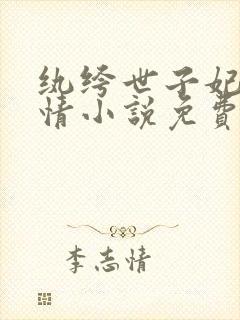 纨绔世子妃
情小说免費
李志情